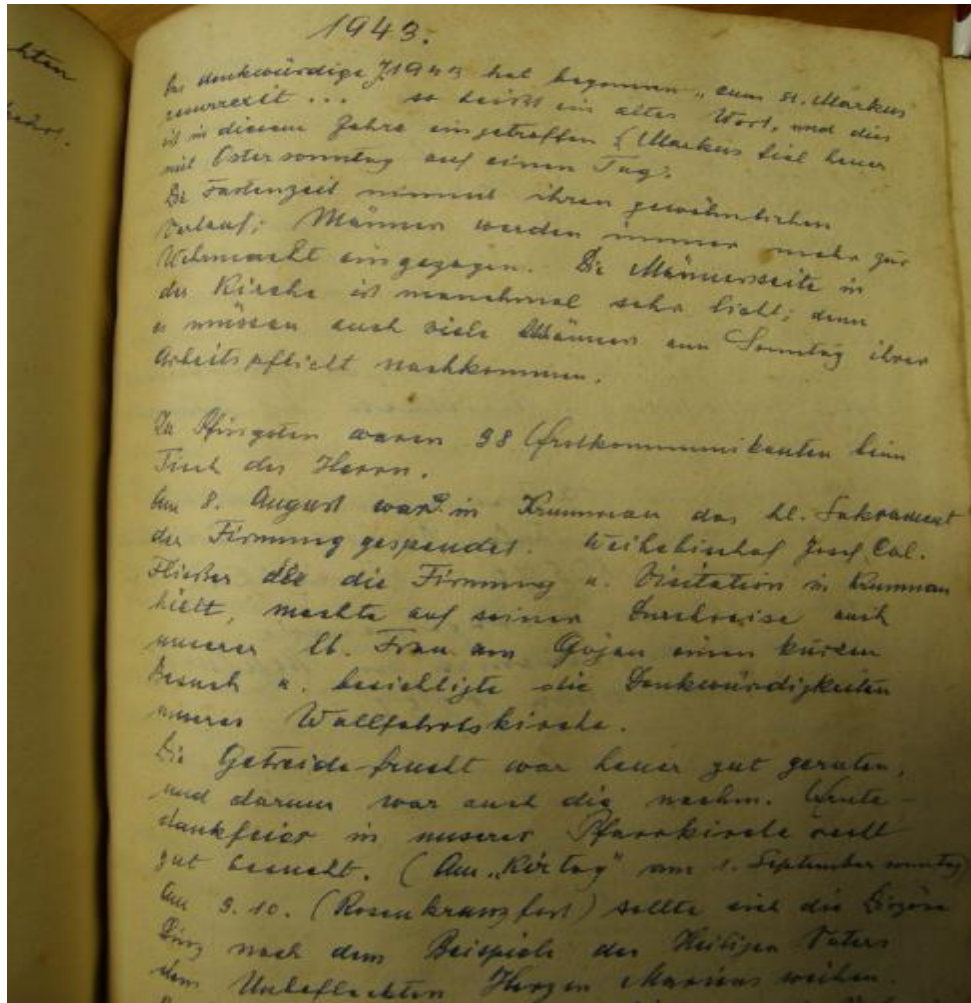 hten
1943.
Das denkwürdige J. 1943 hat begonnen „cum St. Markus
resurrexit ... so heißt ein altes Wort, und dies
ist in diesem Jahre eingetroffen (Markus fiel heuer
mit Ostersonntag auf einen Tag.
Die Fastenzeit nimmt ihren gewöhnlichen
Verlauf; Männer werden immer mehr zur
Wehrmacht eingezogen. Die Männerseite in
der Kirche ist manchmal sehr licht; denn
es müssen auch viele Männer am Sonntag ihrer
Arbeitspflicht nachkommen.
Zu Pfingsten waren 38 Erstkommunikanten beim
Tisch des Herrn.
Am 8. August ward in Krummau das hl. Sakrament
der Firmung gespendet. Weihebischof Josef Cal.
Fließer der die Firmung u. Visitation in Krummau
hielt, machte auf seiner Durchreise auch
unserer lb. Frau am Gojau einen kurzen
Besuch u. besichtigte die Denkwürdigkeiten
unserer Wallfahrtskirche.
Die Getreidefrucht war heuer gut geraten,
und darum war auch die nachm. Ernte-
dankfeier in unserer Pfarrkirche recht
gut besucht. (Am „Kirtag" am 1. Septembersonntag)
Am 3.10. (Rosenkranzfest) sollte sich die Diözese
Linz nach dem Beispiele des Heiligen Vaters
dem Unbefleckten Herzen Mariens weihen.